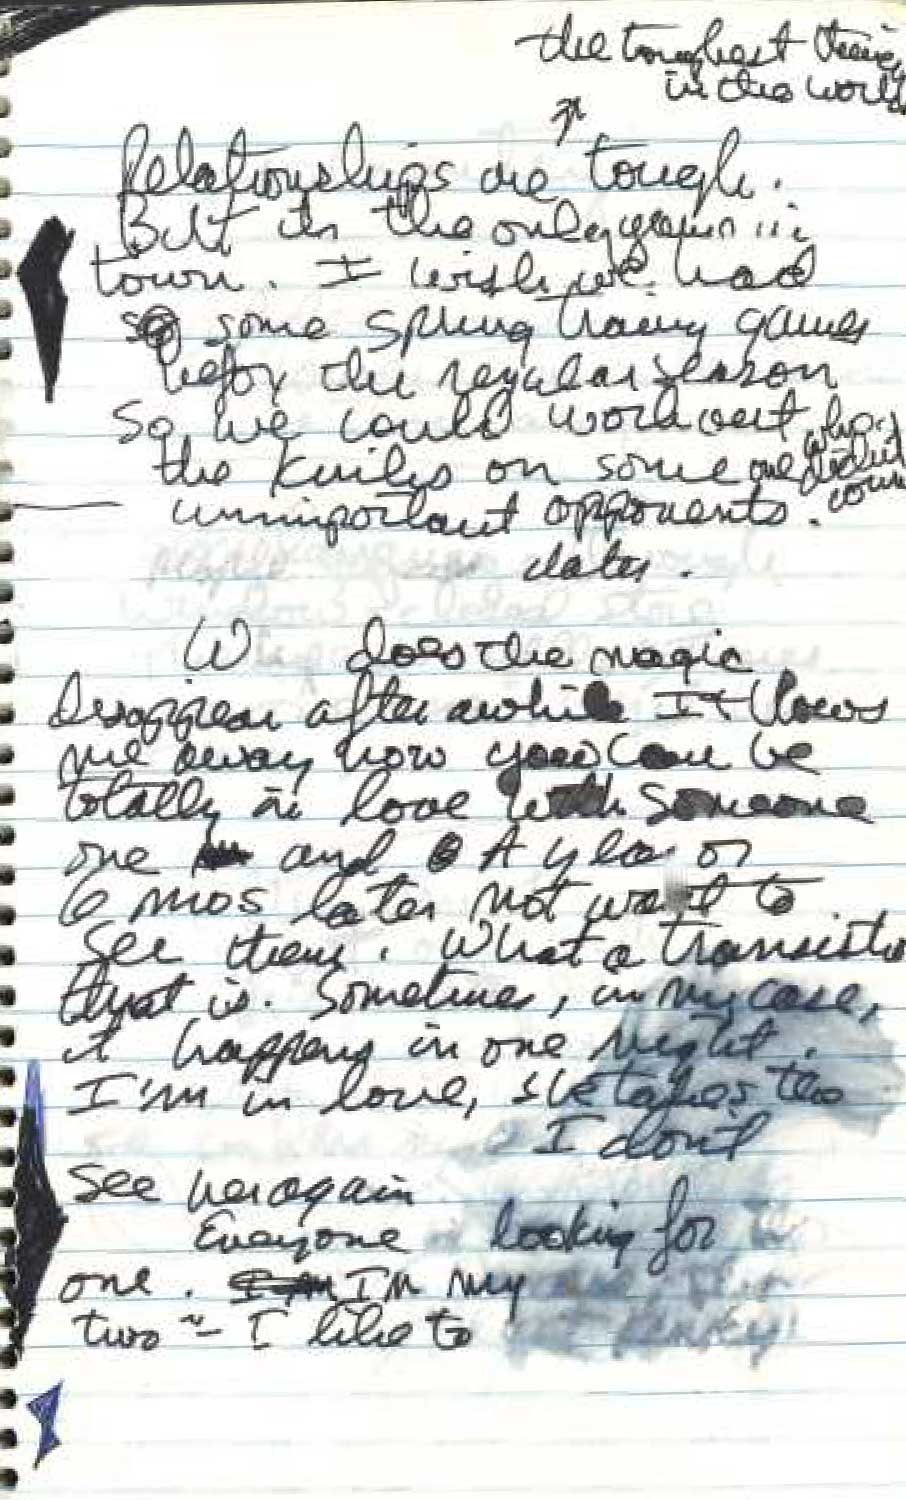 the toughest thing
in the world
Relationships are tough.
But its the only game in
town. I wish we had
some Spring training games
befor the regular season
So we could work out
the Kinks on some one who didnt count
unimportant opponents.
dates.
W does the magic
disappear after awhile It blows
me away how you can be
totally in love with someone
one and A year or
6 mos later not want to
see them. What a
that is. Sometimes, in my case,
it happens in one night.
I'm in love,
I don't
see her again
Everyone looking for
one. I'm my
two - I like to